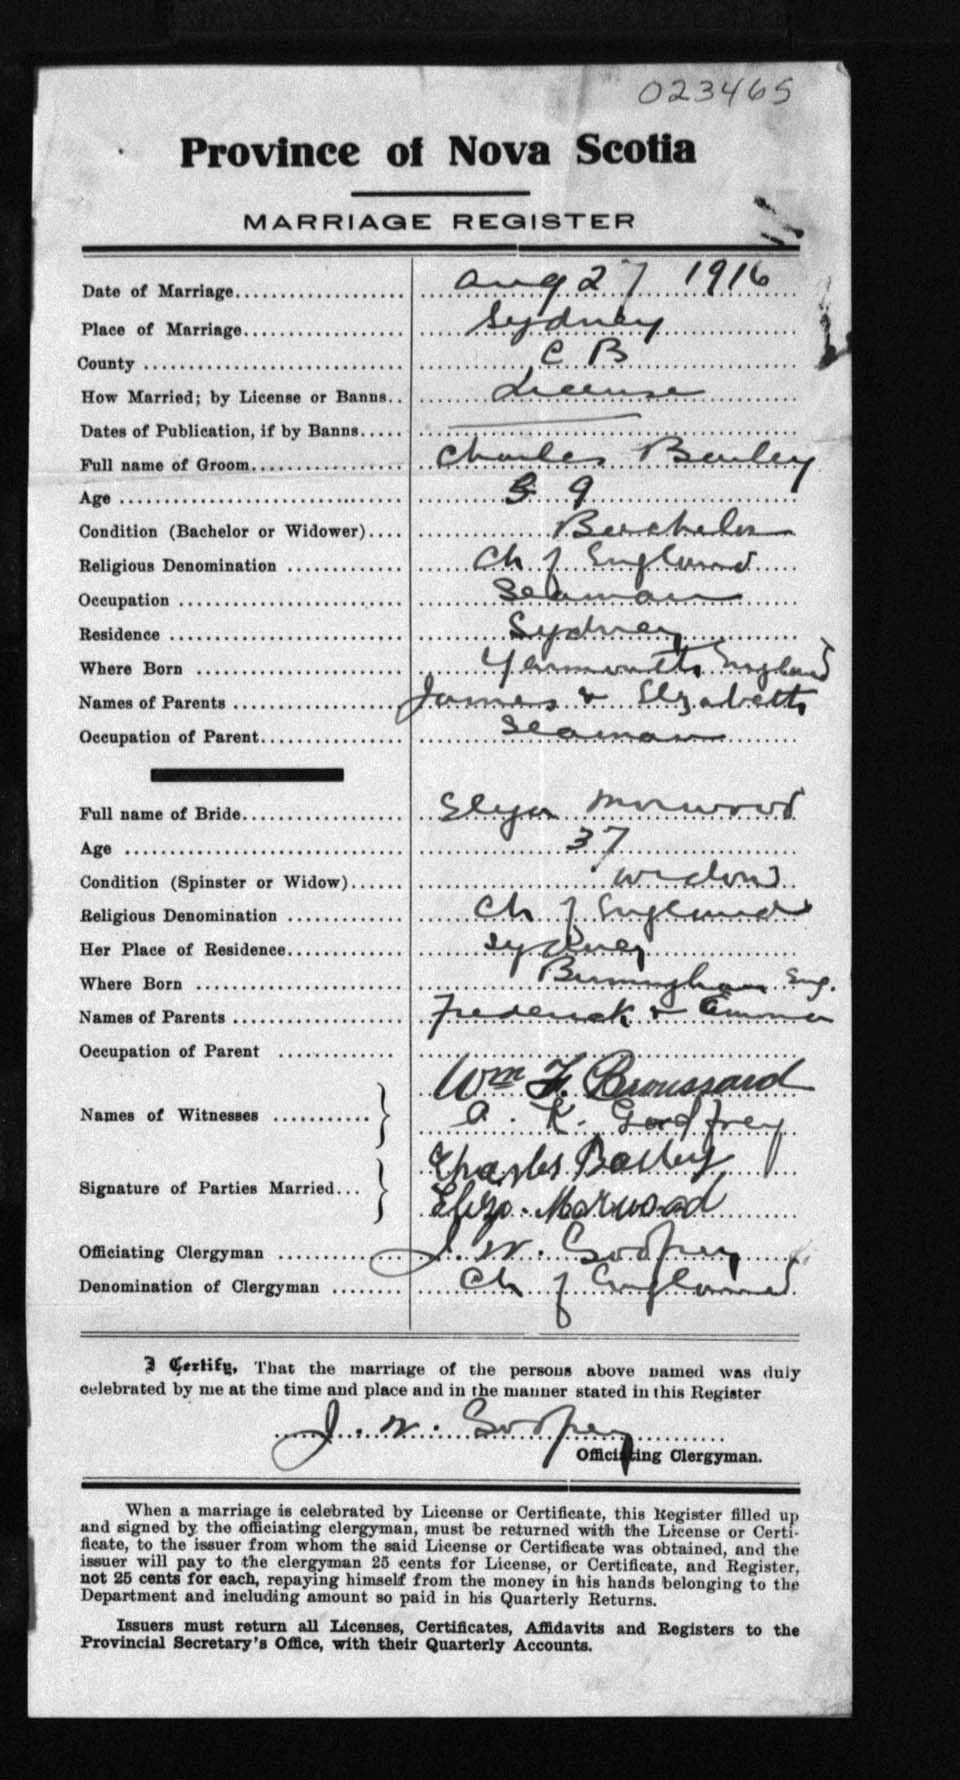 023465
Province of Nova Scotia
MARRIAGE REGISTER
Date of Marriage Aug 27 1916
Place of Marriage Sydney
County C B
How Married; by License or Banns License
Dates of Publication, if by Banns
Full name of Groom Charles
Age 39
Condition (Bachelor or Widower) Bachelor
Religious Denomination Ch of England
Occupation Seaman
Residence Sydney
Where Born Yarmouth England
Names of Parents James & Elizabeth
Occupation of Parent Seaman
Full name of Bride Morwood
Age 37
Condition (Spinster or Widow) Widow
Religious Denomination Ch of England
Her Place of Residence Sydney
Where Born Birmingham Eng.
Names of Parents Frederick & Emma
Occupation of Parent
Wm F. Broussard
Names of Witnesses }
A. K. Godfrey
Charles
Signature of Parties Married... }
Officiating Clergyman J. W. Godfrey
Denomination of Clergyman Ch of England
I Certify, That the marriage of the persons above named was duly
celebrated by me at the time and place and in the manner stated in this Register
J. W. Godfrey
Officiating Clergyman.
When a marriage is celebrated by License or Certificate, this Register filled up
and signed by the officiating clergyman, must be returned with the License or Certi-
ficate, to the issuer from whom the said License or Certificate was obtained, and the
issuer will pay to the clergyman 25 cents for License, or Certificate, and Register,
not 25 cents for each, repaying himself from the money in his hands belonging to the
Department and including amount so paid in his Quarterly Returns.
Issuers must return all Licenses, Certificates, Affidavits and Registers to the
Provincial Secretary's Office, with their Quarterly Accounts.